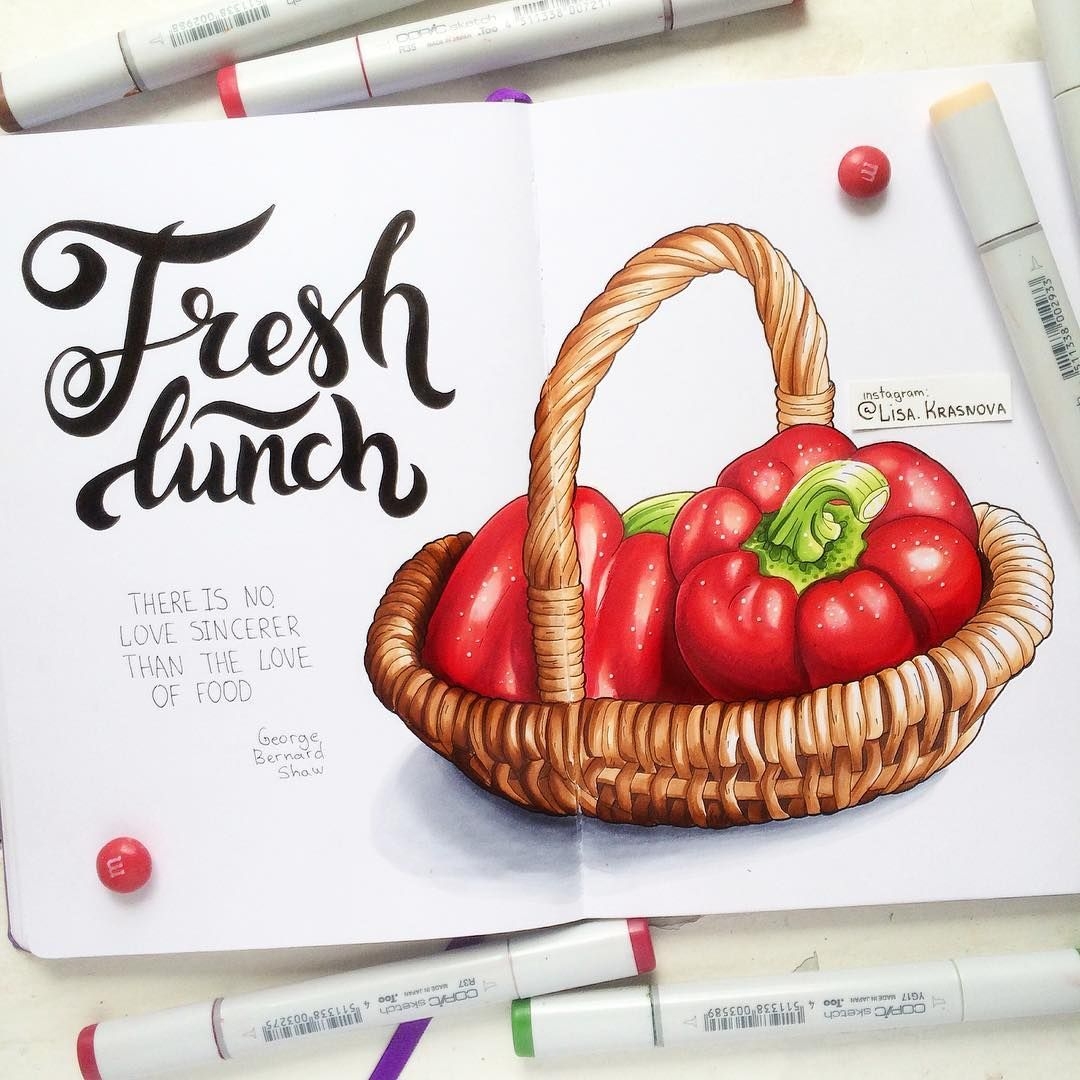 511338 002988
COPIC sketch
R35 MADE IN JAPAN .Too 4 511338 007211
Fresh
lunch
THERE IS NO
LOVE SINCERER
THAN THE LOVE
OF FOOD
George
Bernard
Shaw
m
instagram:
@LISA.KRASNOVA
511338 002933
m
R37
COPIC sketch
MADE IN JAPAN .Too 4 511338 003275
YG17
COPIC sketch
MADE IN JAPAN .Too 4 511338 003589